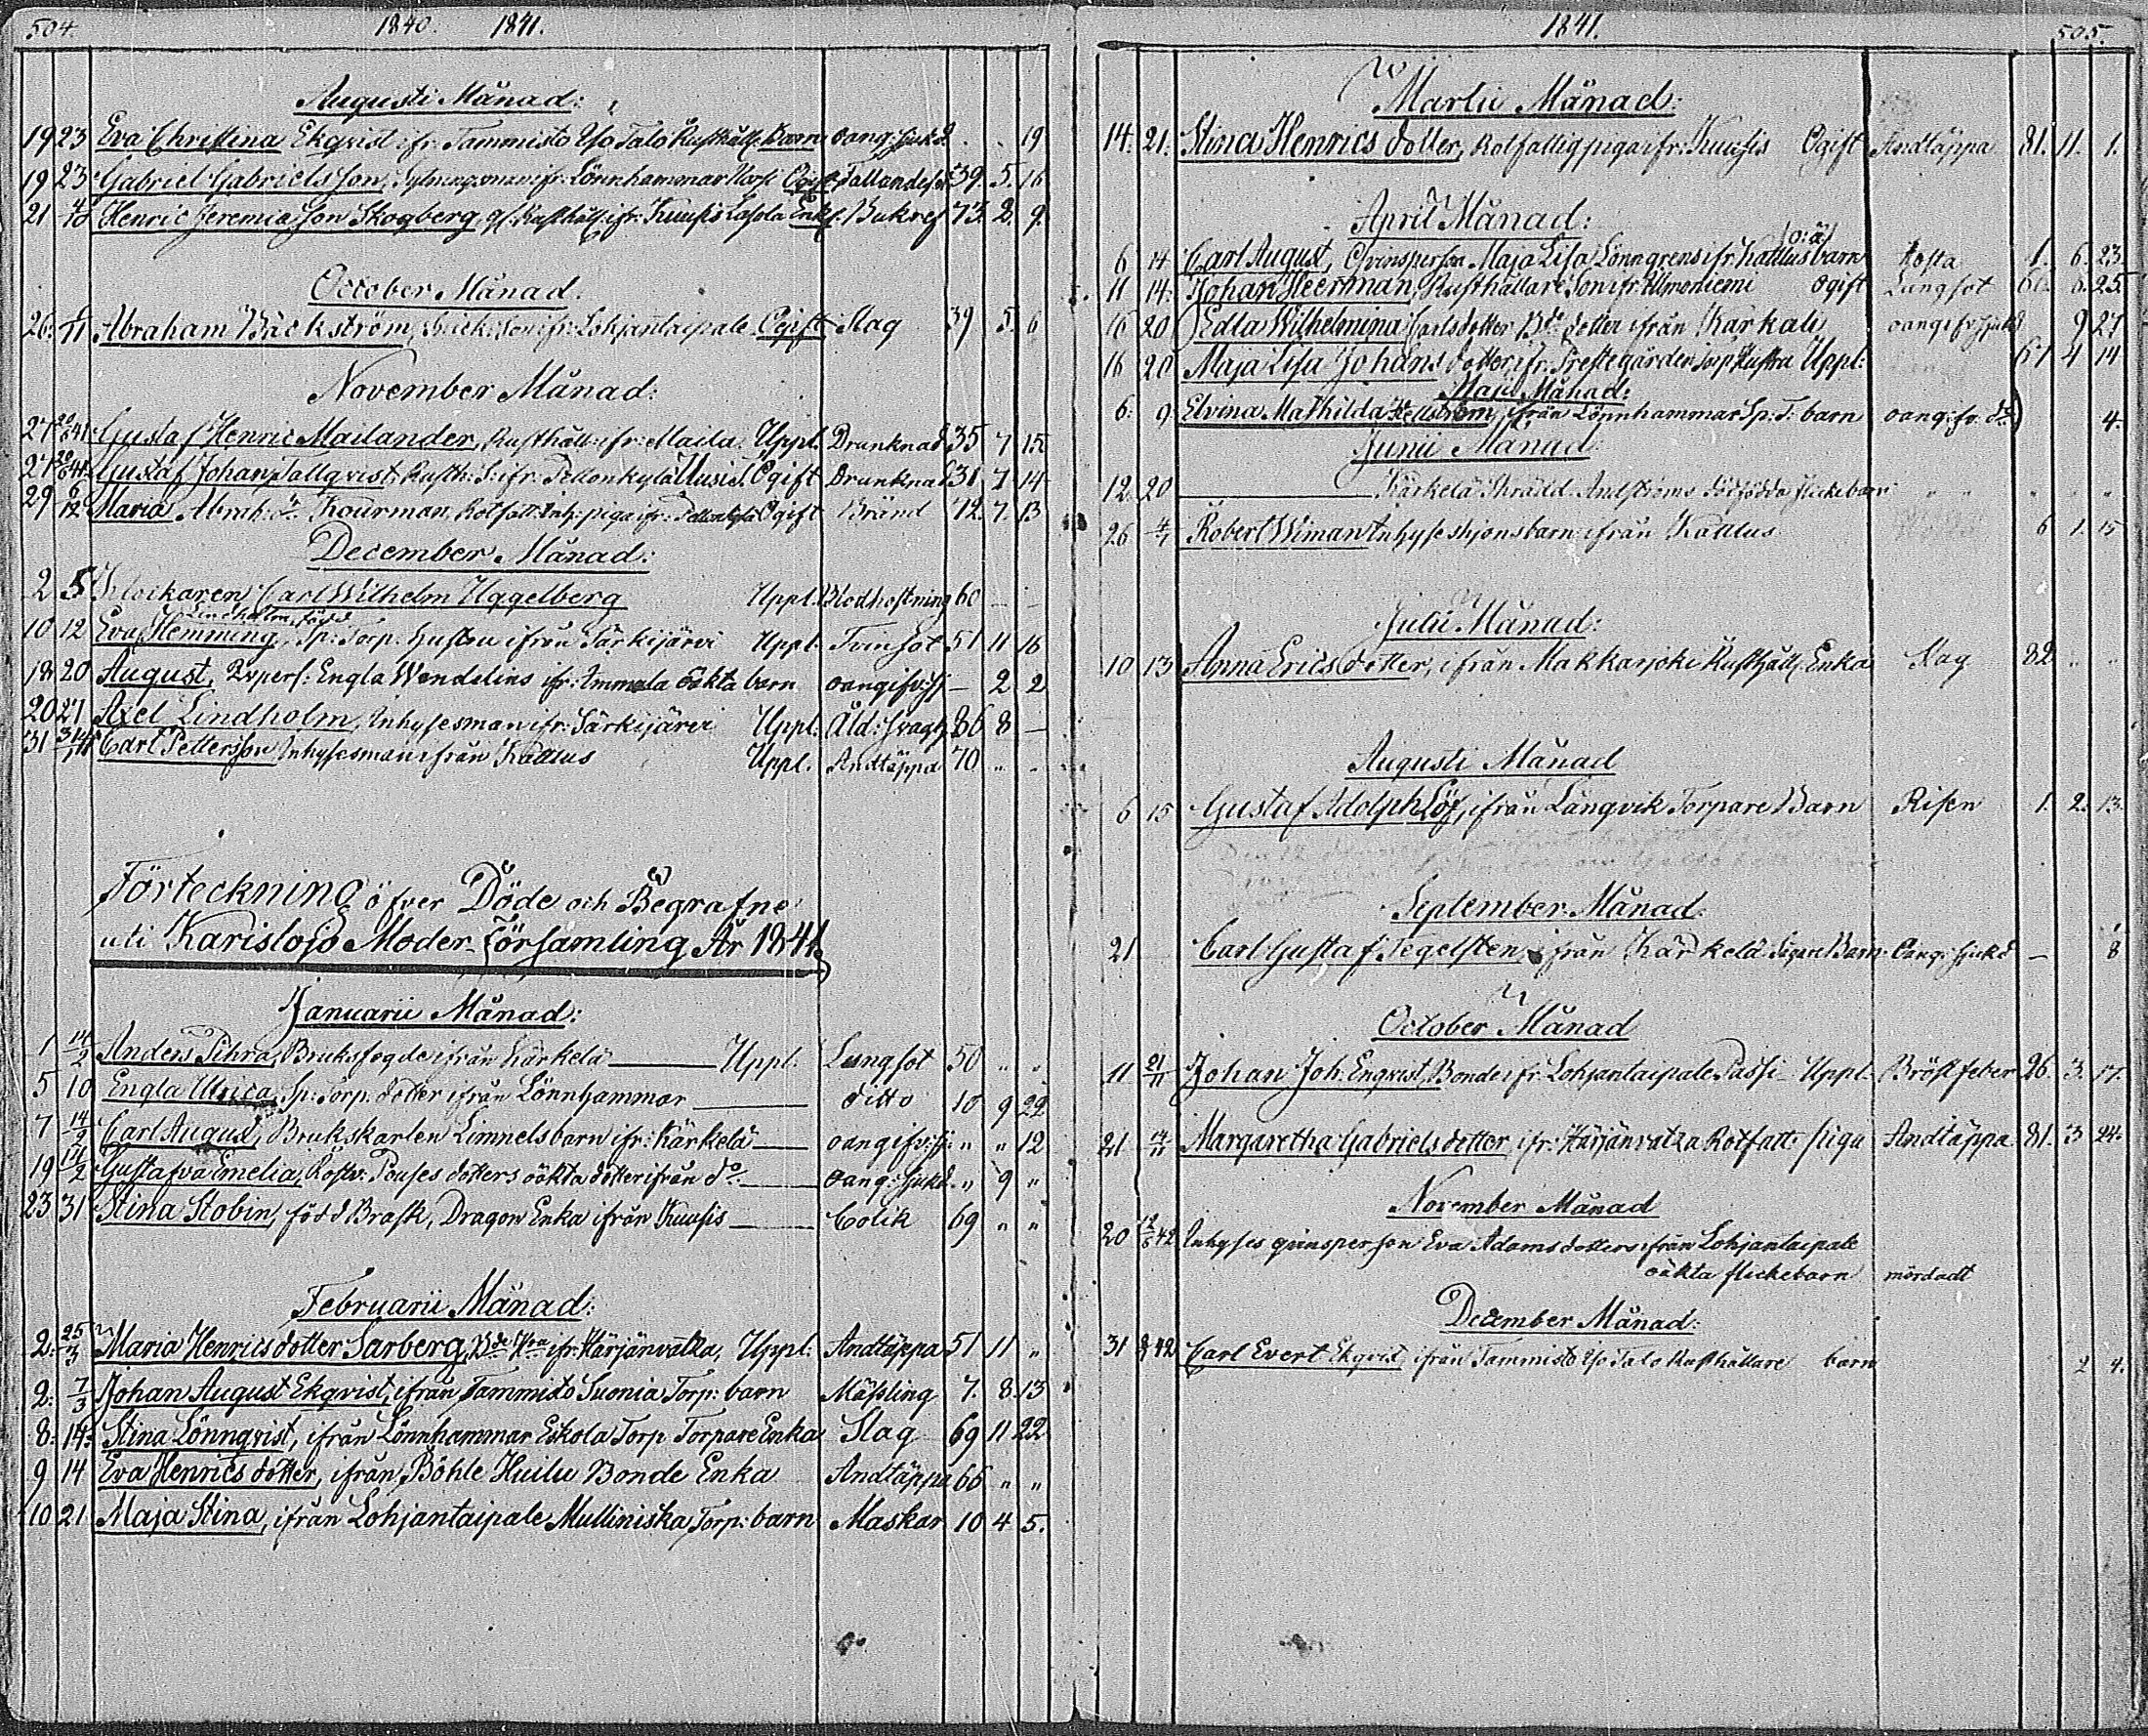 504. 1840. 1841.
Augusti Månad:
19 23 Eva Christina Ekqvist ifr. Tammisto Yso Talo Rusthåll. Barn oang: sjukd. . . 19
19 23 Gabriel Gabrielsson, ifr: Lönnhammar Ogift Fallandesot 39. 5. 16
21 4/10 Henric Jeremiasson Skogberg, Rusthåll: ifr: Kuusis Lassola Enkl. Bukref 73. 2. 9.
October Månad.
26. 1/11 Abraham Bäckström, Son ifr: Lohjantaipale Ogift Slag 39 5. 6
November Månad:
27 20/6 41. Gustaf Henric Mailander, Rusthåll: ifr: Maila. Uppl. Drunknad 35 7 15
27 20/6 41. Gustaf Johan Tallqvist, Rusth: S: ifr: Pellonkylä Uusick Ogift Drunknad 31 7 14
29 6/12 Maria Abrah: dr Kourman, Rotfatt: Inh: piga ifr: Pellonkylä Ogift Bränd 72. 7. 13
December Månad:
2 5 Klockaren Carl Wilhelm Uggelberg Uppl. Blodhostning 60 – –
Lindholm, född
10 12 Eva Hemming, Sp: Torp. hustru ifrån Särkijärvi Uppl: Tvinsot 51 11 16
18 20 August, Qvpers: Engla Wendelins ifr: Immola oäkta barn oangifv: sj – 2 2
20 27 Axel Lindholm, Inhysesman ifr: Särkijärvi Uppl: Åld: svagh. 86 8 –
31 3/1 41 Carl Pettersson Inhysesman ifrån Kattlus Uppl. Andtäppa 70 " "
Förteckning öfver Döde och Begrafne
uti Karislojo Moder-Församling År 1841.
Januarii Månad:
1 14/2 Anders Pihra, Bruksfogde ifrån Kärkelä Uppl. Lungsot 50 " "
5 10 Engla Ulrica, Sp: Torp: dotter ifrån Lönnhammar ditto 10 9 22
7 14/2 Carl August, Brukskarlen Limnels barn ifr: Kärkelä oangifv: sj: " " 12
19 14/2 Gustafva Emelia, dotters oäkta dotter ifrån do: oang: sjukd. " 9 "
23 31 Stina Stobin, född Brask, Dragon Enka ifrån Kuusis Colik 69 " "
Februarii Månad:
2. 25/3 Maria Henricsdotter Sarberg, Bde Hra ifr: Härjänvatka, Uppl: Andtäppa 51 11 "
2. 7/3 Johan August Ekqvist, ifrån Tammisto Suonia Torp: barn Mässling 7. 8. 13
8. 14. Stina Lönnqvist, ifrån Lönnhammar Eskola Torp Torpare Enka Slag 69 11 22
9 14 Eva Henrics dotter, ifrån Böhle Huilu Bonde Enka Andtäppa 66 " "
10 21 Maja Stina, ifrån Lohjantaipale Mulliniska Torp: barn Maskar 10 4 5.
1841. 505.
Martii Månad:
14. 21. Stina Henrics dotter, Rotfattig piga ifr: Kuusis Ogift Andtäppa 81. 11. 1.
April Månad:
/o:ä/
6 14 Carl August, Qvinsperson Maja Lisa Lönngrens ifr: Kattlus barn Hosta 1. 6. 23
11 14. Johan Heerman, Rusthållare Son ifr: Ilmoniemi ogift Lungsot 6. 25.
16 20 Edla Wilhelmina Carlsdotter Bde dotter ifrån Karkali oangifv: sjukd 9 27
16 20 Maja Lisa Johans dotter, ifr: Prestegården Torp Hustru Uppl: 61 4 14
Maji Månad:
6. 9. Elvina Mathilda Hellström, ifrån Lönnhammar Sp. T. barn oang: fv: do 4.
Junii Månad
12 20 Kärkelä Skrädd. dödfödda flickebarn " " "
26 4/7 Robert Wiman Inhyseshjonsbarn ifrån Kattlus 6 1. 15
Julii Månad:
10 13 Anna Erics dotter, ifrån Makkarjoki Rusthåll: Enka Slag 82 " "
Augusti Månad
6 15 Gustaf Adolph Löf, ifrån Långvik Torpare Barn Risen 1. 2. 13.
September Månad.
21 Carl Gustaf Tegelsten, ifrån Kärkelä Barn Oang: sjukd – 8
October Månad
11 21/11 Johan Joh. Enqvist, Bonde ifr: Lohjantaipale Passi Uppl. Bröstfeber 26. 3. 17.
21 Margaretha Gabriels dotter ifr: Härjänvatka Rotfatt. piga Andtäppa 81. 3 24.
November Månad
20 12/5 42 Inhyses qvinsperson Eva Adams dotters ifrån Lohjantaipale
oäkta flickebarn mördadt
December Månad:
31 42 Carl Evert Ekqvist, ifrån Tammisto Yso Talo Rusthållare barn 2 4.